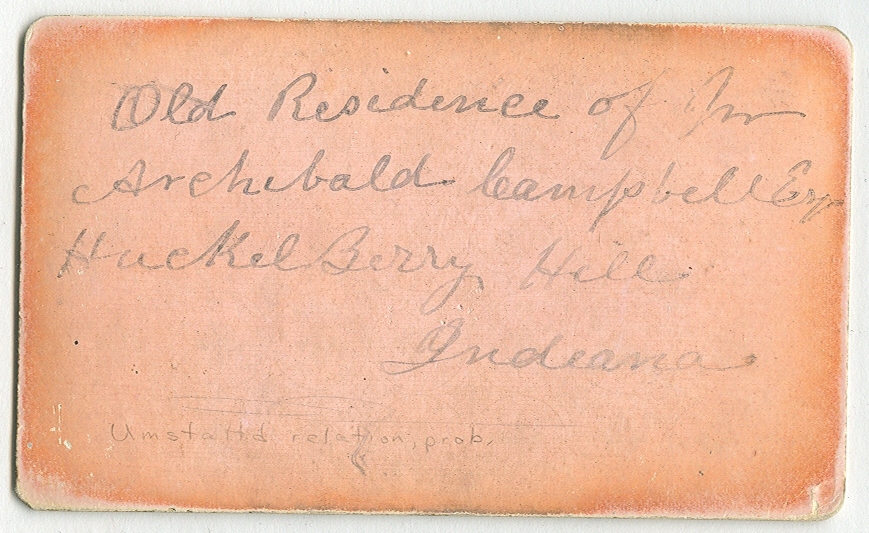 Old Residence of Jno
Archibald Campbell Esqr
Huckel Berry Hill
Indeana
Umstattd relation, prob.